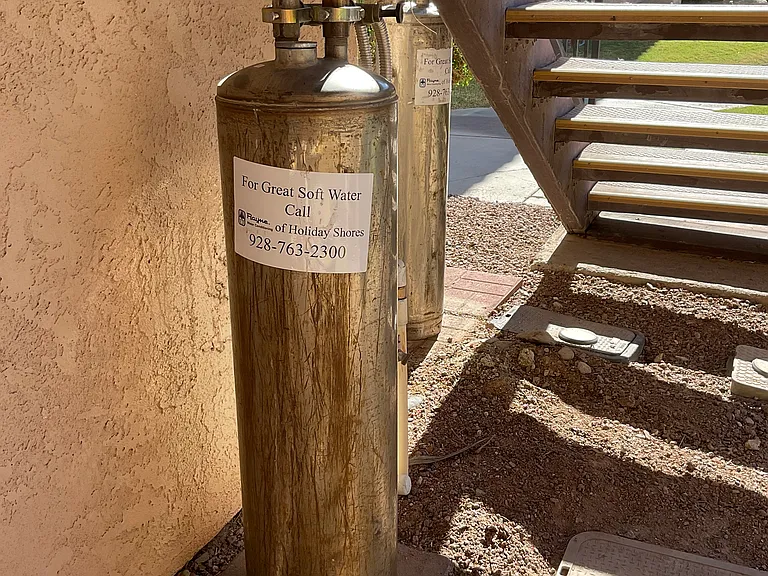 For Great Soft Water
Call
Rayne of Holiday Shores
928-763-2300
For Great
C
Rayne of H
928-76